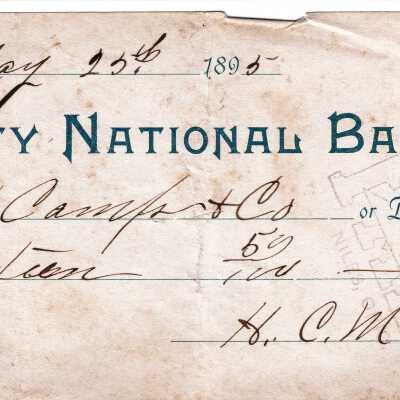 ay 25th 1895
TY NATIONAL BA
Camp & Co or
teen 50/100
H. C. M